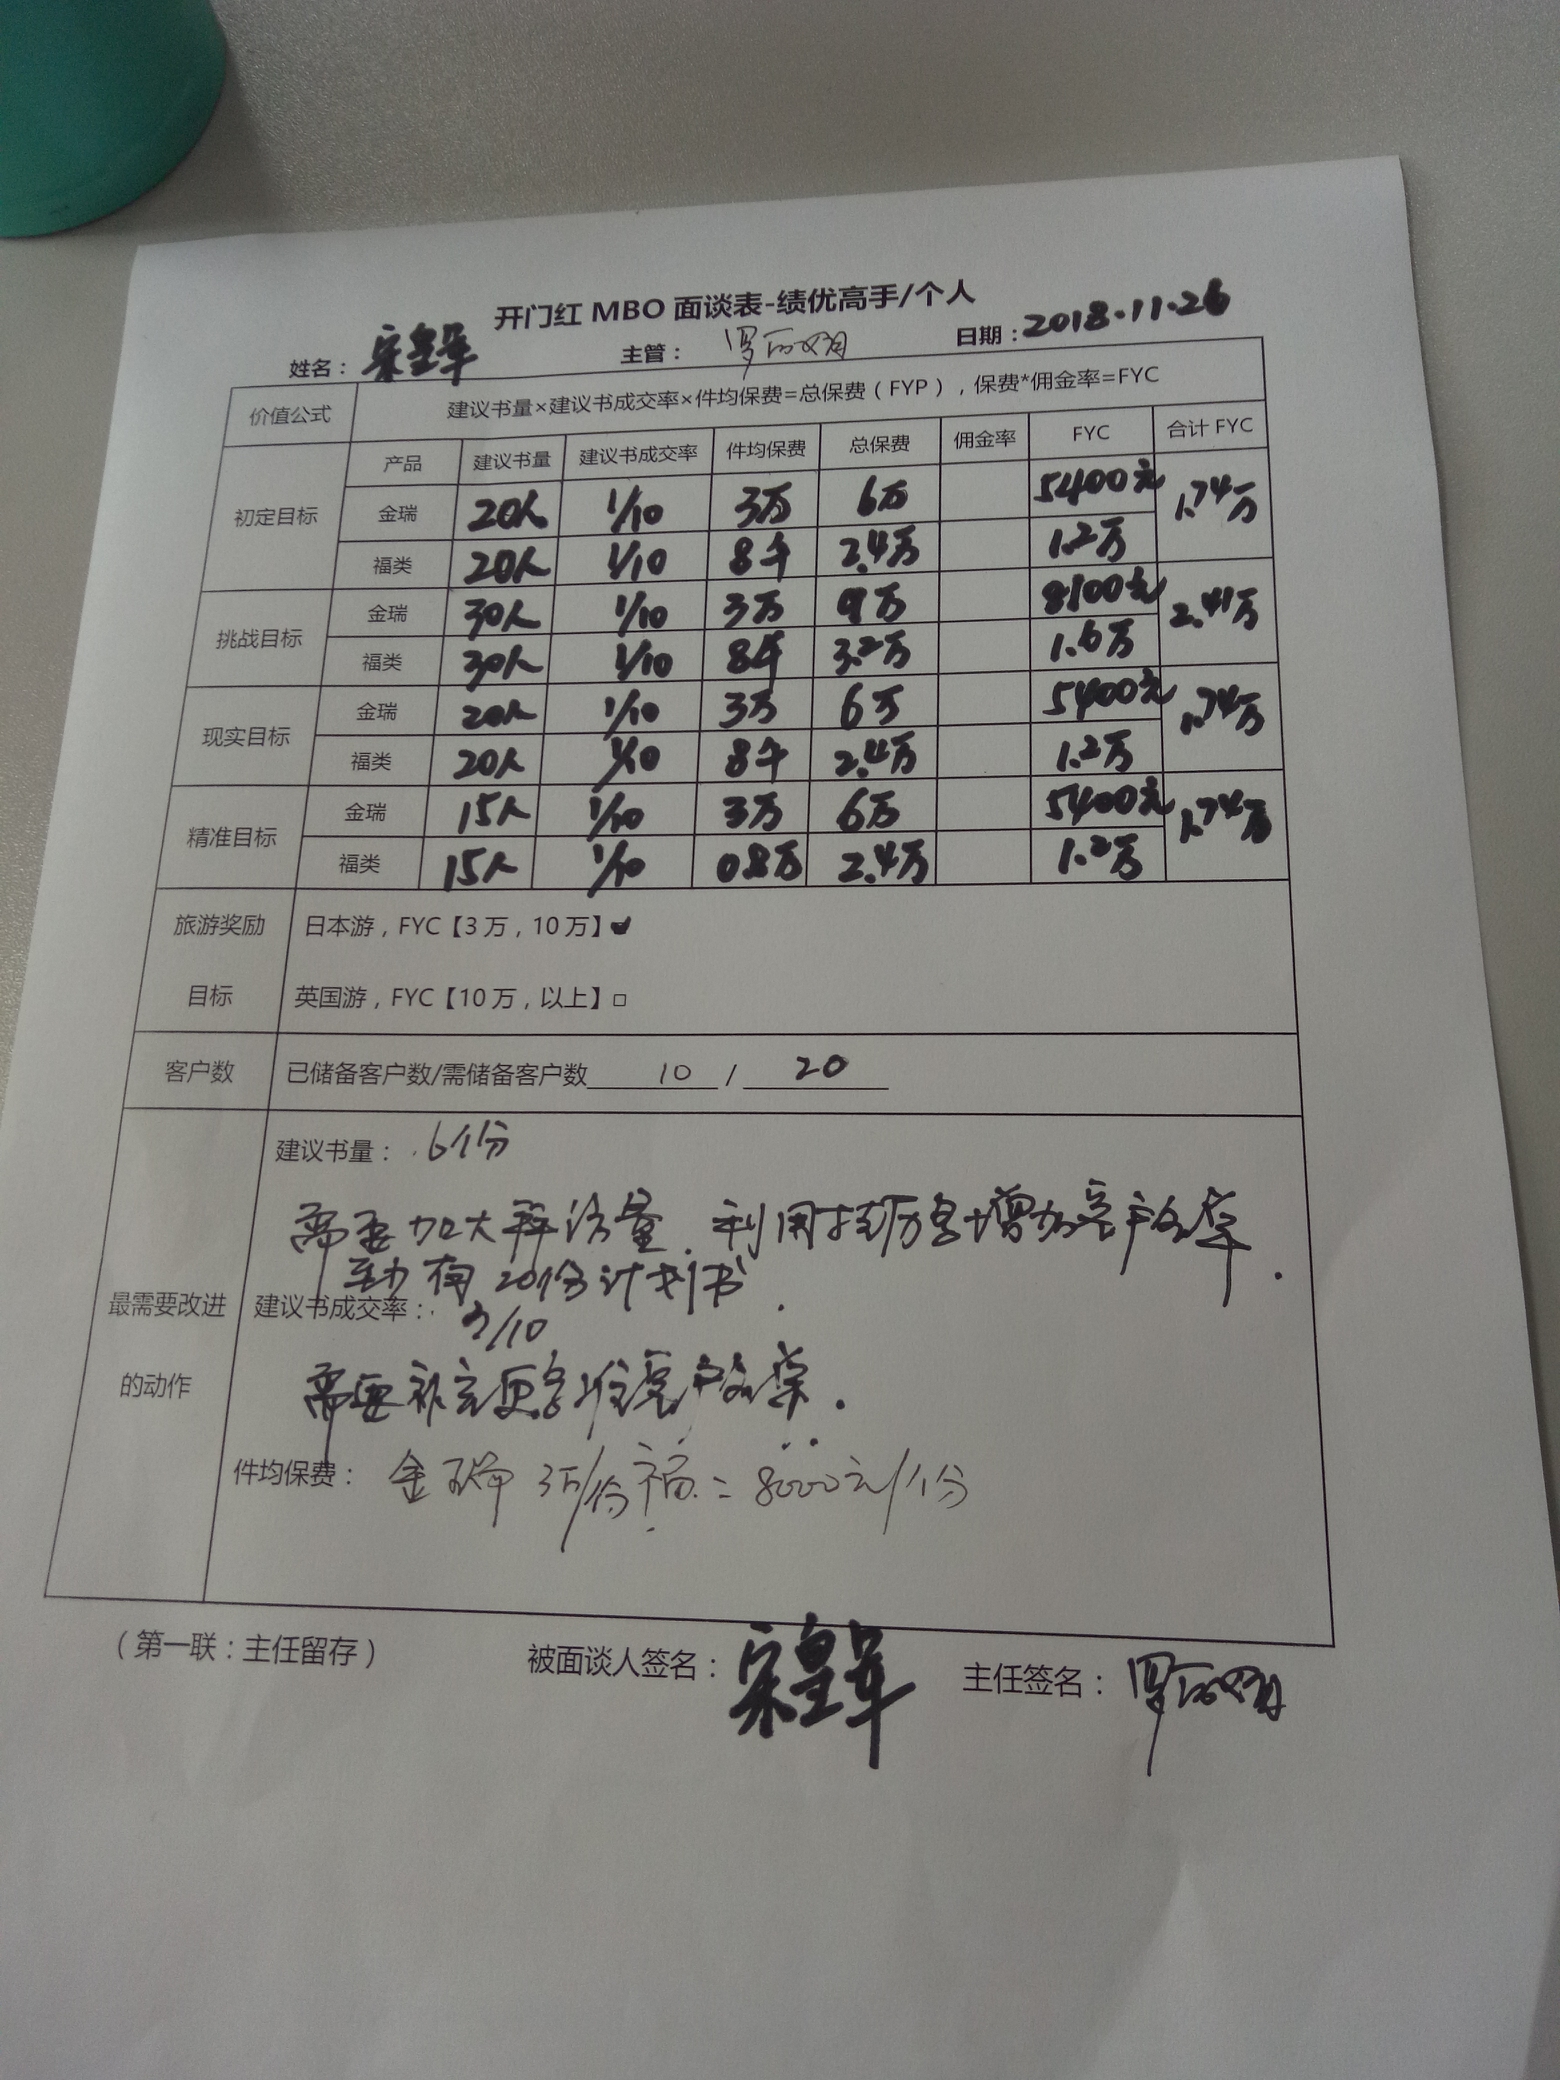 开门红 MBO 面谈表-绩优高手/个人
姓名： 宋皇军 主管： 罗丽娟 日期：2018.11.26
价值公式 建议书量×建议书成交率×件均保费=总保费（FYP），保费*佣金率=FYC
产品 建议书量 建议书成交率 件均保费 总保费 佣金率 FYC 合计 FYC
初定目标 金瑞 20人 1/10 3万 6万 5400元 1.74万
福类 20人 1/10 8千 2.4万 1.2万
挑战目标 金瑞 30人 1/10 3万 9万 8100元 2.41万
福类 30人 1/10 8千 3.2万 1.6万
现实目标 金瑞 20人 1/10 3万 6万 5400元 1.74万
福类 20人 1/10 8千 2.4万 1.2万
精准目标 金瑞 15人 1/10 3万 6万 5400元 1.74万
福类 15人 1/10 0.8万 2.4万 1.2万
旅游奖励 日本游，FYC【3 万，10 万】
目标 英国游，FYC【10 万，以上】□
客户数 已储备客户数/需储备客户数 10 / 20
建议书量： 6个份
需要加大拜访量，利用 增加客户
有20份计划书.
最需要改进 建议书成交率： /10
的动作 需要 更 客户 .
件均保费： 金瑞 3万/份 福=8000元/份
（第一联：主任留存） 被面谈人签名：宋皇军 主任签名：罗丽娟